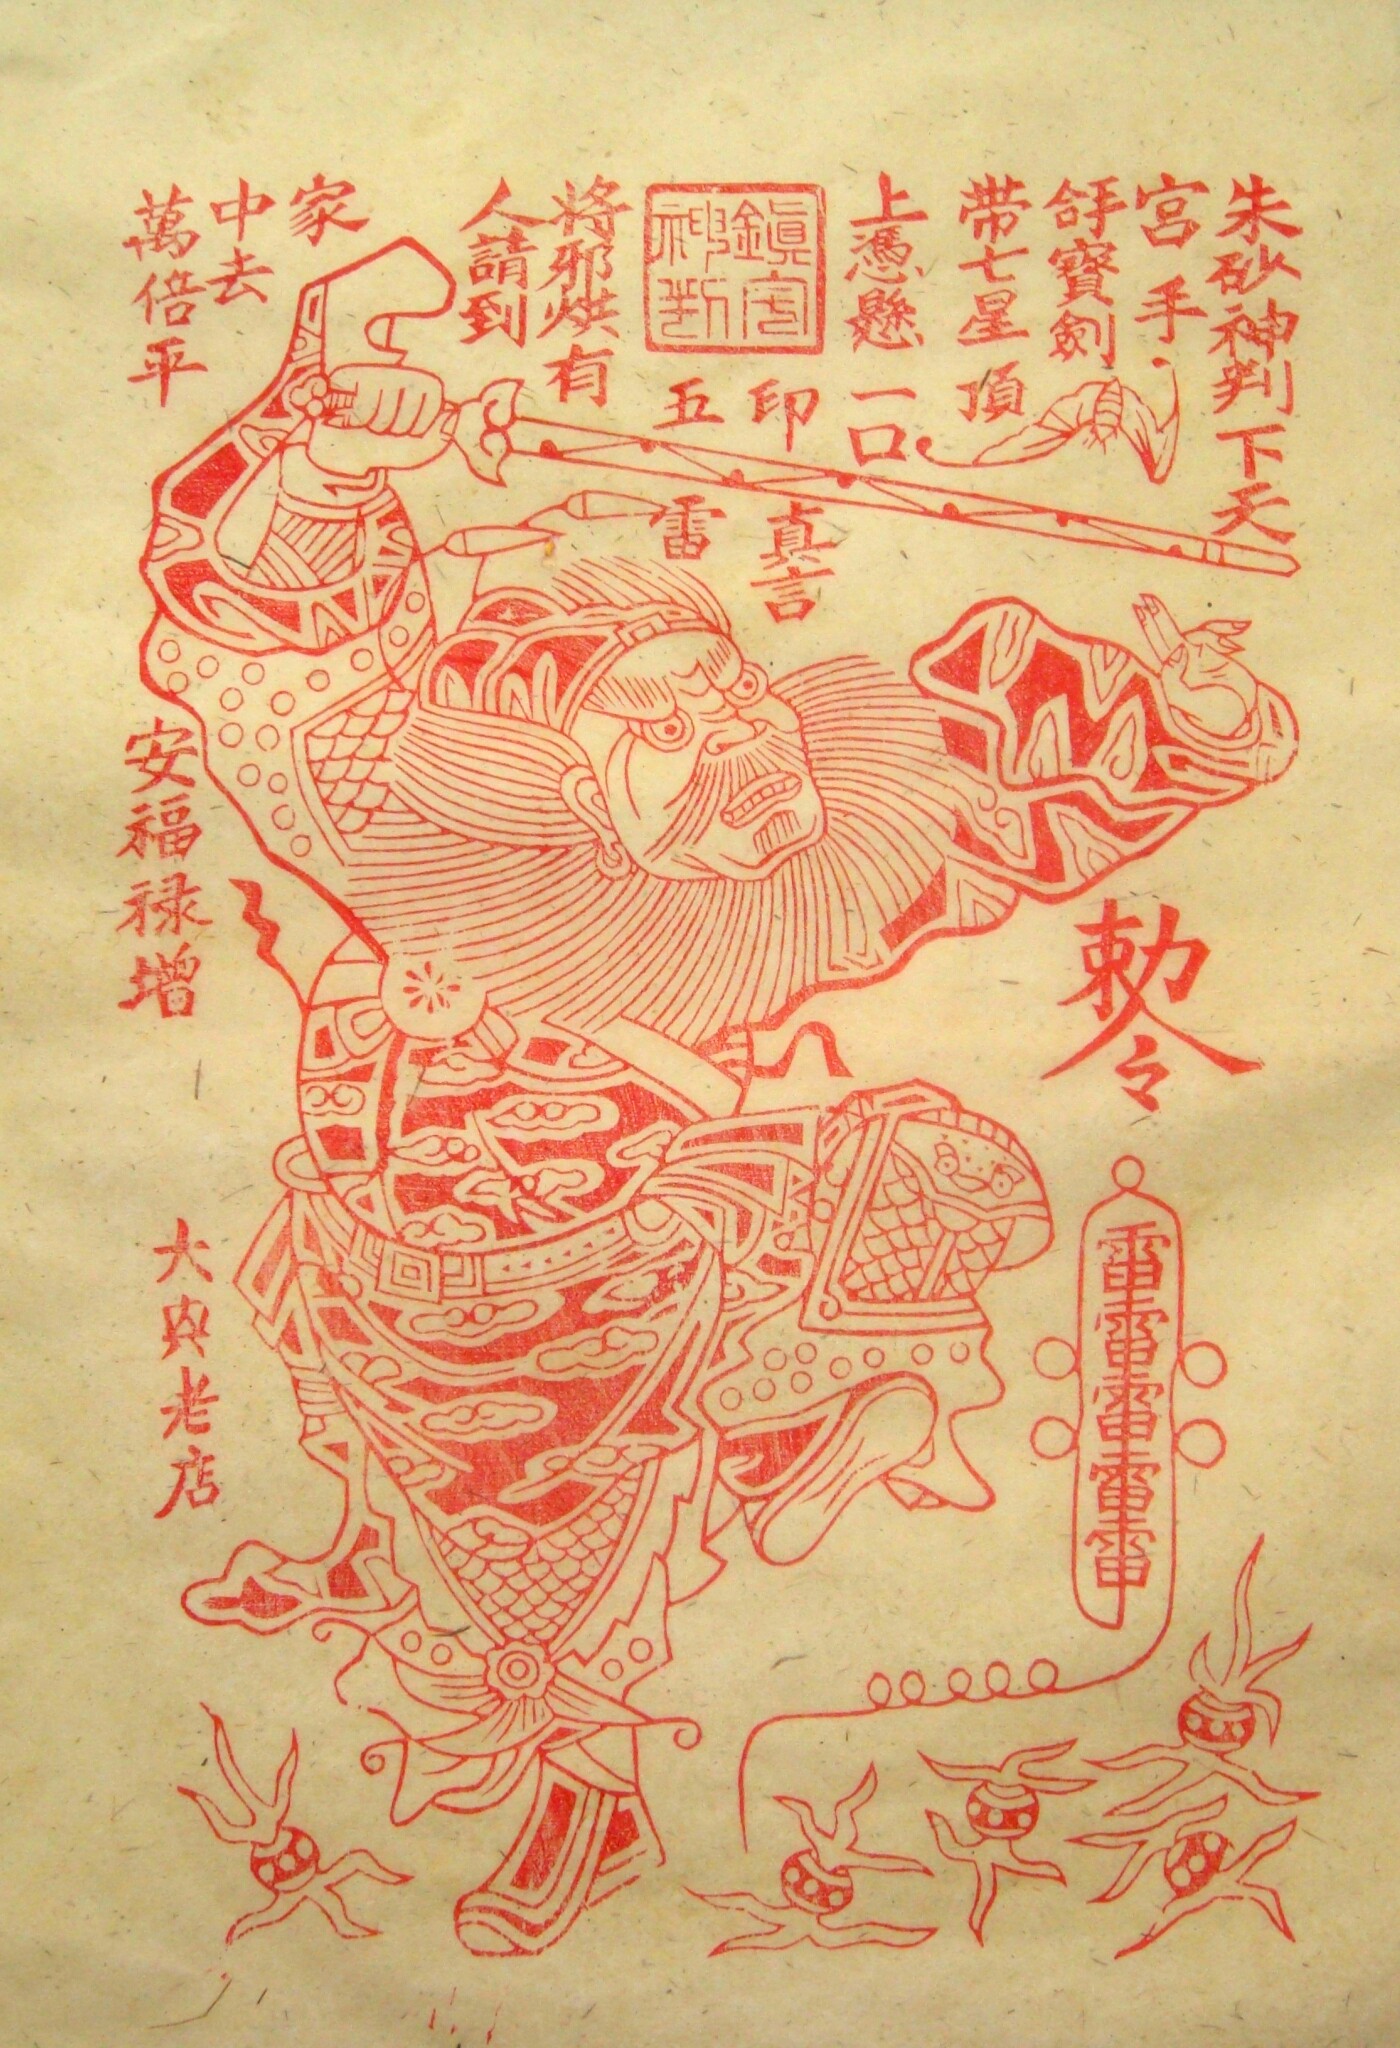 朱砂神判下天
宮手
拿寶劍
带七星頂
上憑懸一口
印真言
五雷
鎮宅
神判
將邪烘有
人請到
家
中去
萬倍平
安福禄增
大內老店
勅令
雷雷雷雷雷